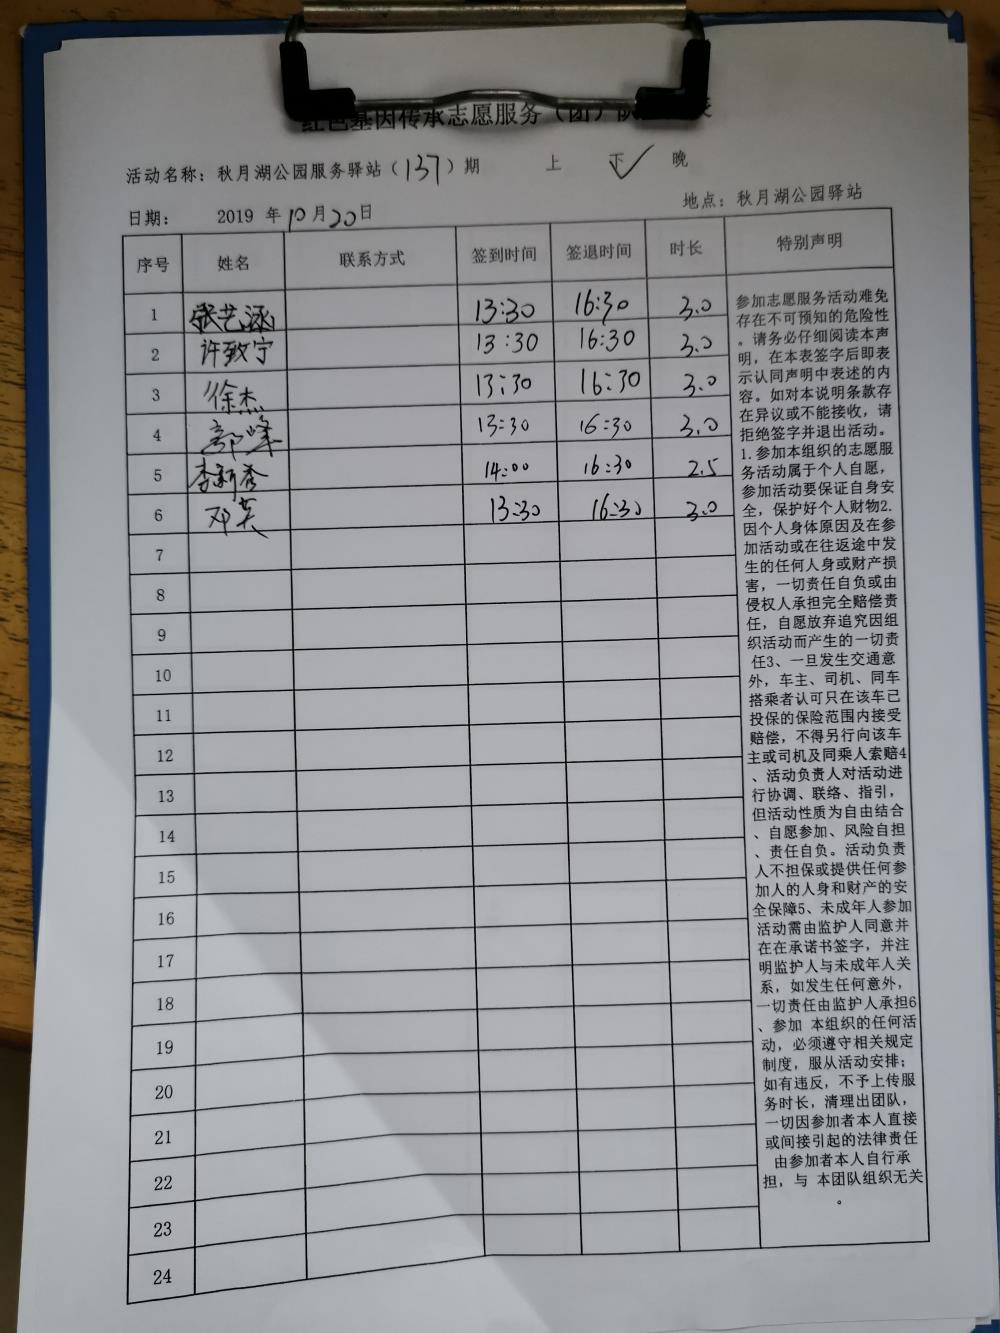 红色基因传承志愿服务（团）队
活动名称：秋月湖公园服务驿站（137）期 上 下✓ 晚
日期： 2019 年10月20日 地点：秋月湖公园驿站
序号 姓名 联系方式 签到时间 签退时间 时长 特别声明
1 张艺涵 13:30 16:30 3.0
2 许致宁 13:30 16:30 3.0
3 徐杰 13:30 16:30 3.0
4 郭峰 13:30 16:30 3.0
5 李新秀 14:00 16:30 2.5
6 邓英 13:30 16:30 3.0
7
8
9
10
11
12
13
14
15
16
17
18
19
20
21
22
23
24
参加志愿服务活动难免
存在不可预知的危险性
。请务必仔细阅读本声
明，在本表签字后即表
示认同声明中表述的内
容。如对本说明条款存
在异议或不能接收，请
拒绝签字并退出活动。
1.参加本组织的志愿服
务活动属于个人自愿，
参加活动要保证自身安
全，保护好个人财物2.
因个人身体原因及在参
加活动或在往返途中发
生的任何人身或财产损
害，一切责任自负或由
侵权人承担完全赔偿责
任，自愿放弃追究因组
织活动而产生的一切责
任3、一旦发生交通意
外，车主、司机、同车
搭乘者认可只在该车已
投保的保险范围内接受
赔偿，不得另行向该车
主或司机及同乘人索赔4
、活动负责人对活动进
行协调、联络、指引，
但活动性质为自由结合
、自愿参加、风险自担
、责任自负。活动负责
人不担保或提供任何参
加人的人身和财产的安
全保障5、未成年人参加
活动需由监护人同意并
在在承诺书签字，并注
明监护人与未成年人关
系，如发生任何意外，
一切责任由监护人承担6
、参加 本组织的任何活
动，必须遵守相关规定
制度，服从活动安排；
如有违反，不予上传服
务时长，清理出团队，
一切因参加者本人直接
或间接引起的法律责任
由参加者本人自行承
担，与 本团队组织无关
。